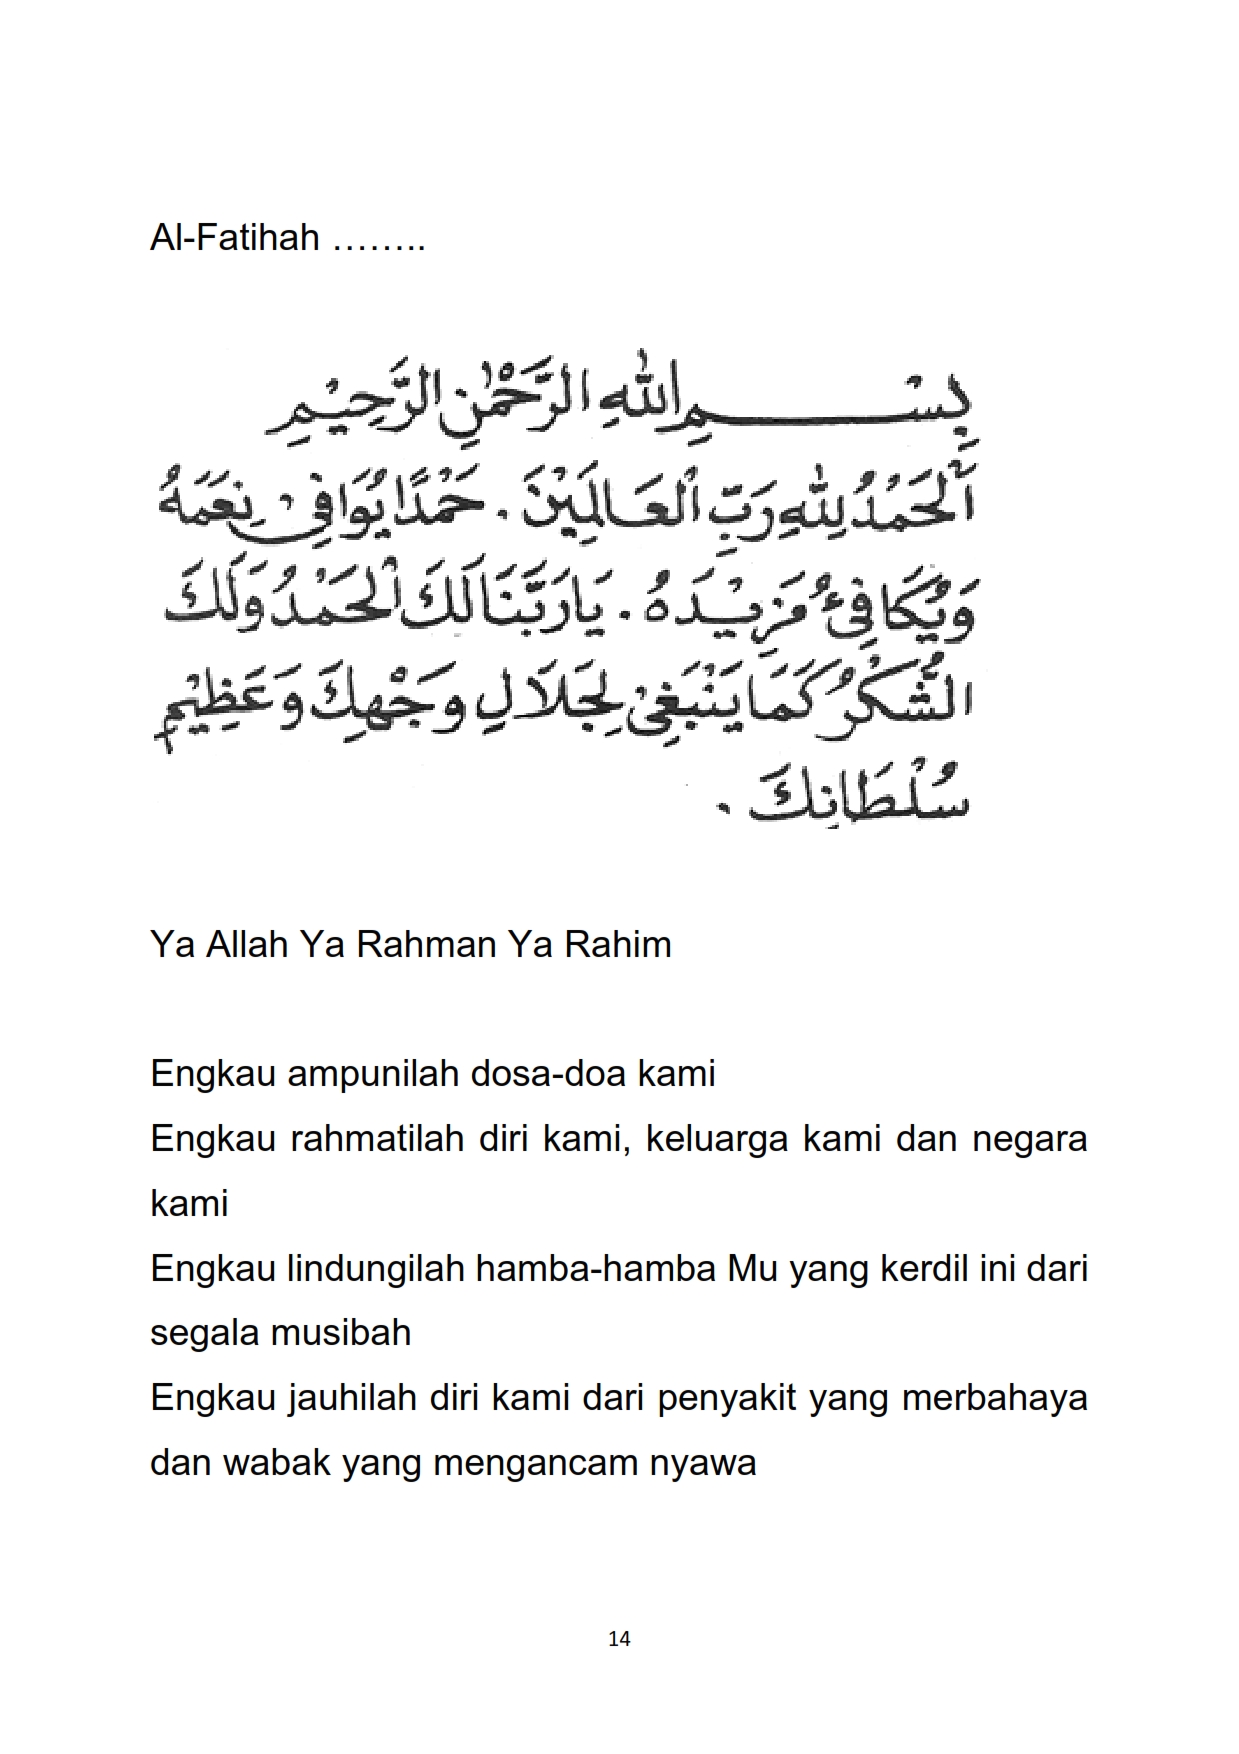 Al-Fatihah ……..
بِسْمِ اللهِ الرَّحْمٰنِ الرَّحِيْمِ
اَلْحَمْدُ لِلّٰهِ رَبِّ الْعَالَمِيْنَ . حَمْدًا يُوَافِيْ نِعَمَهُ
وَيُكَافِئُ مَزِيْدَهُ . يَارَبَّنَا لَكَ الْحَمْدُ وَلَكَ
الشُّكْرُ كَمَا يَنْبَغِيْ لِجَلَالِ وَجْهِكَ وَعَظِيْمِ
سُلْطَانِكَ .
Ya Allah Ya Rahman Ya Rahim
Engkau ampunilah dosa-doa kami
Engkau rahmatilah diri kami, keluarga kami dan negara
kami
Engkau lindungilah hamba-hamba Mu yang kerdil ini dari
segala musibah
Engkau jauhilah diri kami dari penyakit yang merbahaya
dan wabak yang mengancam nyawa
14